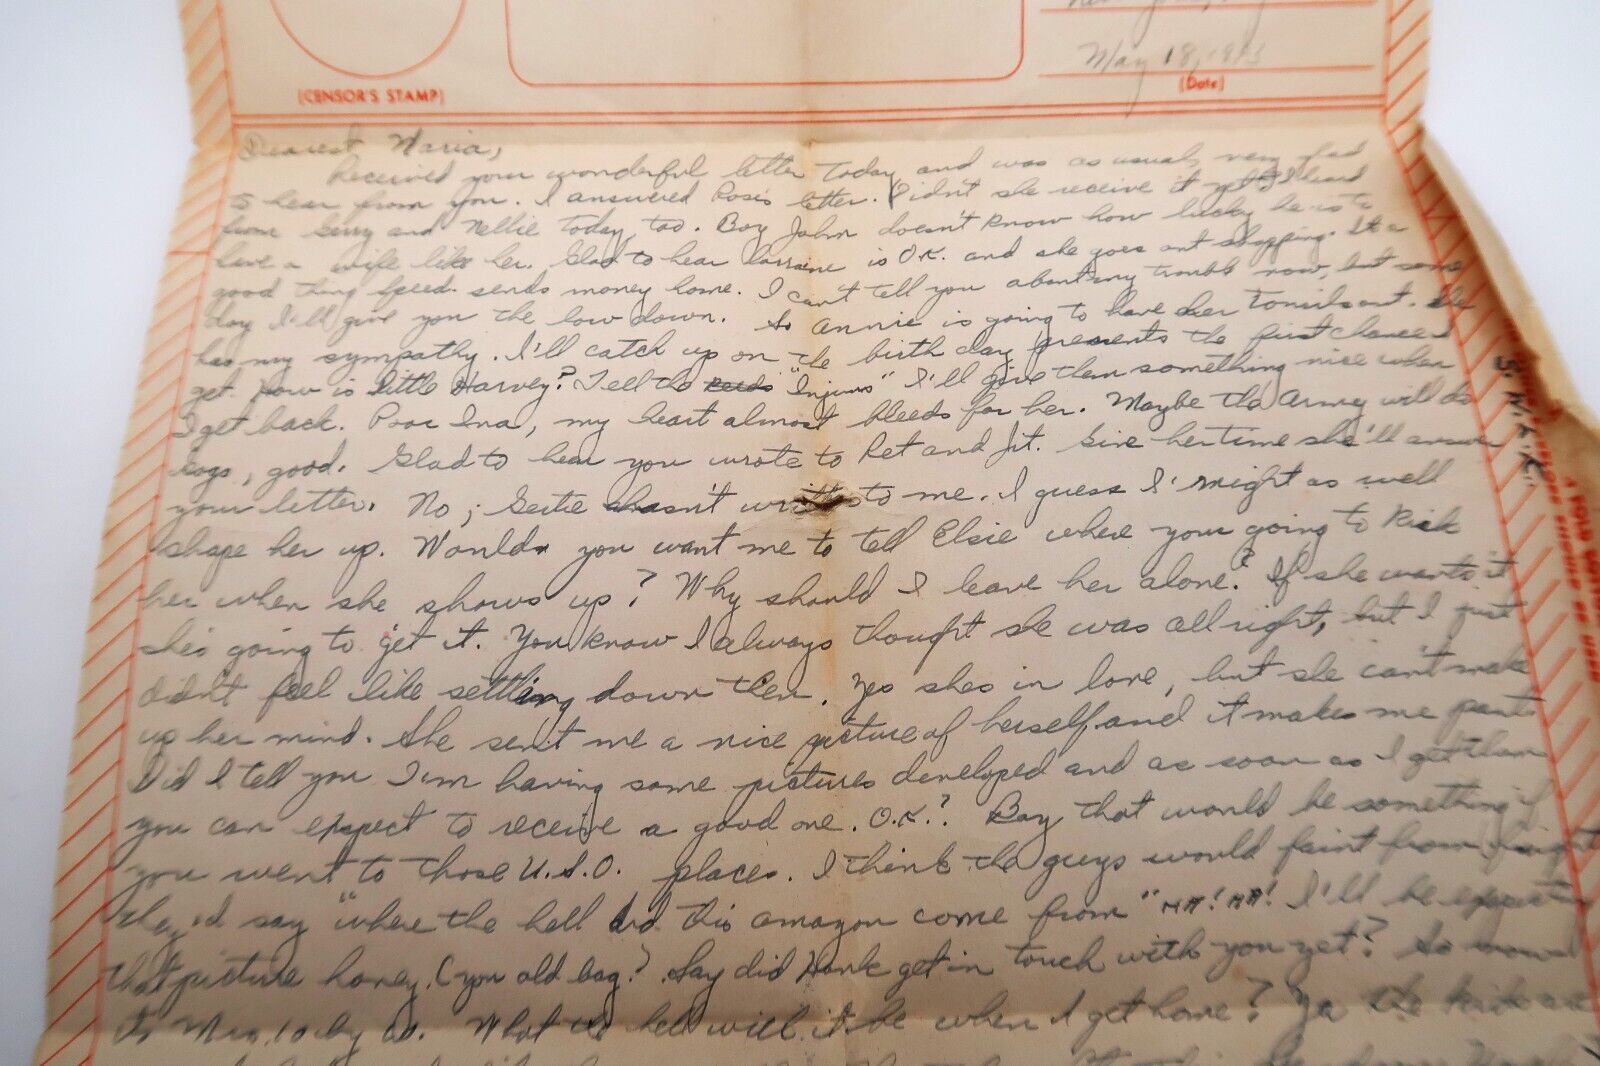 May 18, 1943
(CENSOR'S STAMP)
(Date)
Dearest Maria,
Received your wonderful letter today, and was as usual, very glad
to hear from you. I answered Rose's letter. Didn't she receive it yet? I heard
from Gerry and Nellie today, too. Boy John doesn't know how lucky he is to
have a wife like her. Glad to hear Lorraine is O.K. and she goes out shopping. It's a
good thing Speed sends money home. I can't tell you about my trouble now, but some
day I'll give you the low down. So Annie is going to have her tonsils out. She
has my sympathy. I'll catch up on the birthday presents the first chance I
get. How is little Harvey? Tell the "Injuns" I'll give them something nice when
I get back. Poor Ina, my heart almost bleeds for her. Maybe the Army will do
good. Glad to hear you wrote to Ret and Jit. Give her time she'll answer
your letter. No, Gertie hasn't written to me. I guess I might as well
shape her up. Would you want me to tell Elsie where your going to kick
her when she shows up? Why should I leave her alone? If she wants it
she's going to get it. You know I always thought she was all right, but I just
didn't feel like settling down then. Yes shes in love, but she can't make
up her mind. She sent me a nice picture of herself and it makes me pant
Did I tell you I'm having some pictures developed and as soon as I get them
you can expect to receive a good one. O.K.? Boy that would be something if
you went to those U.S.O. places. I think the guys would faint from fright
they'd say "where the hell did this amazon come from" HA! HA! I'll be expecting
that picture honey. (you old bag.? Say did Hank get in touch with you yet? So
What the hell will it be when I get home? Ya the kids are